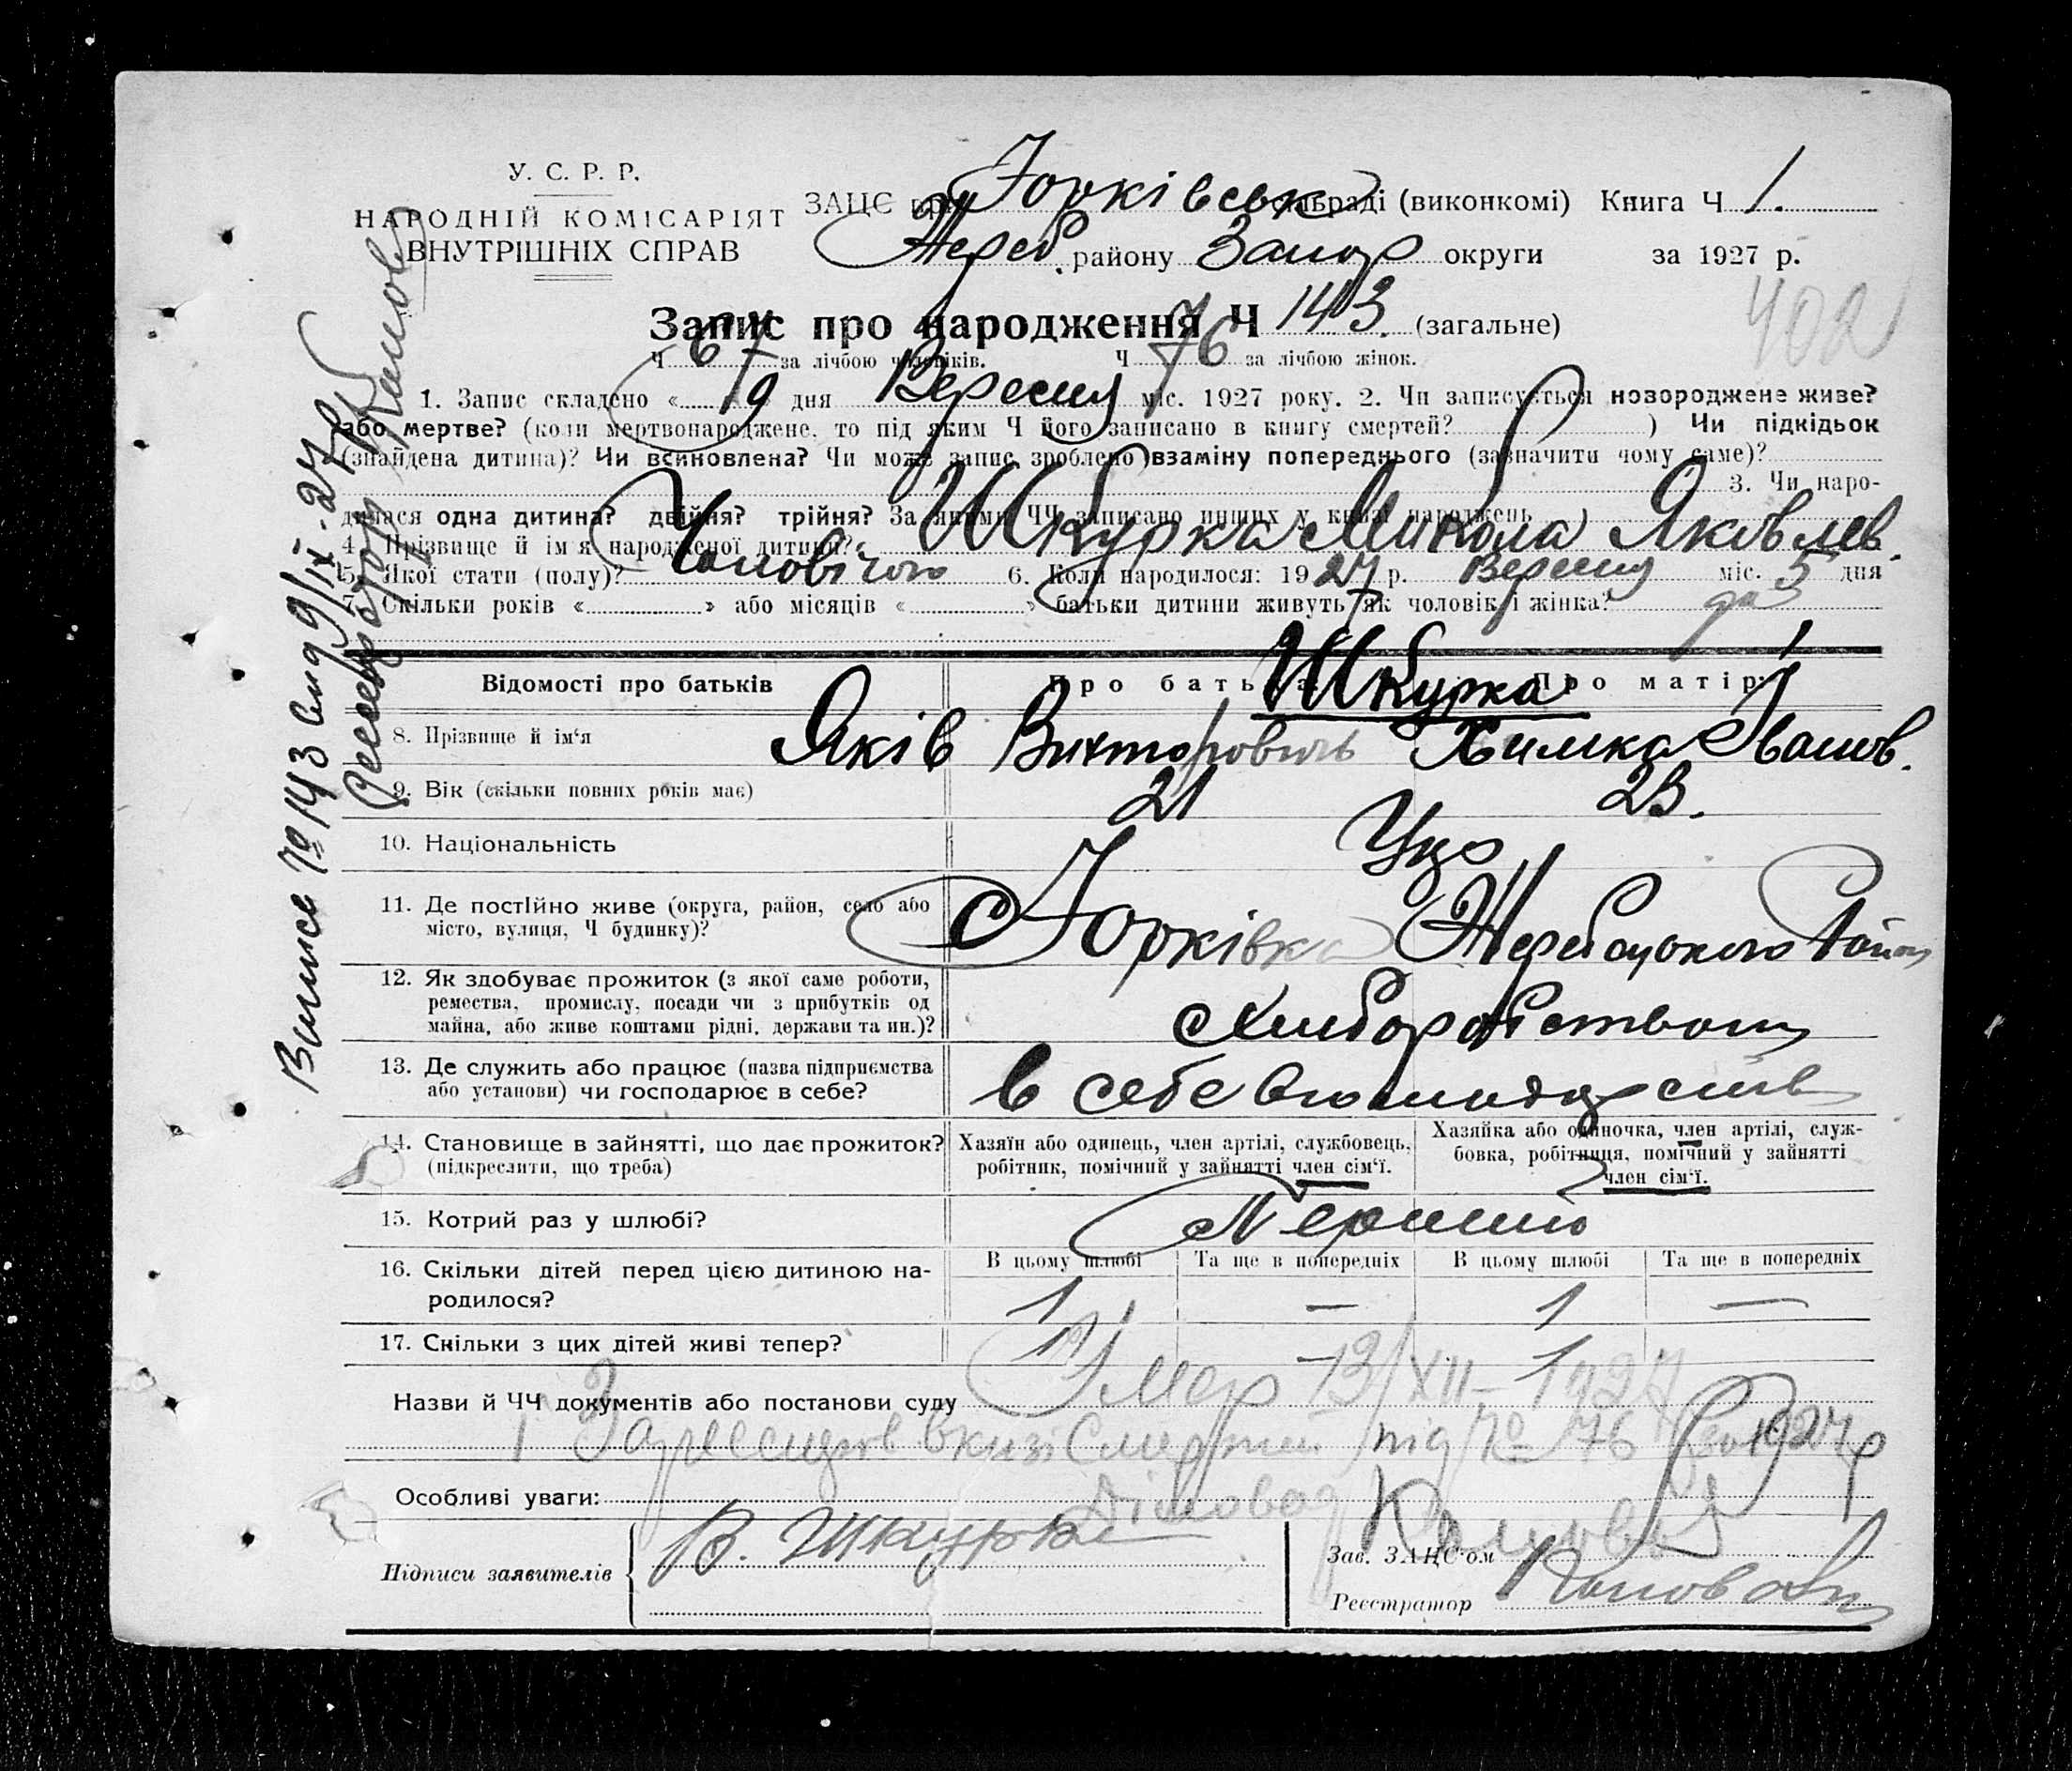 У. С. Р. Р.
НАРОДНІЙ КОМІСАРІЯТ
ВНУТРІШНІХ СПРАВ
ЗАЦС при Юрківськ сільраді (виконкомі) Книга Ч 1.
Жереб. району Запор округи за 1927 р.
402
Запис про народження Ч 143. (загальне)
Ч 67 за лічбою чоловіків. Ч 76 за лічбою жінок.
1. Запис складено « 9 дня Вересня міс. 1927 року. 2. Чи записується новороджене живе?
або мертве? (коли мертвонароджене, то під яким Ч його записано в книгу смертей? ) Чи підкідьок
(знайдена дитина)? Чи всиновлена? Чи може запис зроблено взаміну попереднього (зазначити чому саме)?
3. Чи наро-
дилася одна дитина? двійня? трійня? За якими ЧЧ записано инших у книзі народжень
4. Прізвище й ім'я народженої дитини? Шкурка Микола Яковлев.
5. Якої стати (полу)? Чоловічого 6. Коли народилося: 1927 р. Вересня міс. 5 дня
7. Скільки років « » або місяців « » батьки дитини живуть як чоловік і жінка?
Відомості про батьків Про батька Шкурка Про матір:
8. Прізвище й ім'я Яків Викторовичь Химка Іванов.
9. Вік (скільки повних років має) 21 23.
10. Національність Укр
11. Де постійно живе (округа, район, село або
місто, вулиця, Ч будинку)? с Юрківка Жеребецького Район
12. Як здобуває прожиток (з якої саме роботи,
ремества, промислу, посади чи з прибутків од
майна, або живе коштами рідні, держави та ин.)? Хлиборобством
13. Де служить або працює (назва підприємства
або установи) чи господарює в себе? в себе
14. Становище в зайнятті, що дає прожиток?
(підкреслити, що треба)
Хазяїн або одинець, член артілі, службовець,
робітник, помічний у зайнятті член сім'ї.
Хазяйка або одиночка, член артілі, служ-
бовка, робітниця, помічний у зайнятті
член сім'ї.
15. Котрий раз у шлюбі?
16. Скільки дітей перед цією дитиною на-
родилося?
В цьому шлюбі Та ще в попередніх В цьому шлюбі Та ще в попередніх
1 — 1 —
17. Скільки з цих дітей живі тепер? 1 — 1
Умер 13/XII-1927
Назви й ЧЧ документів або постанови суду
під № 76 1927 р
Діловод
Особливі уваги:
Підписи заявителів В. Шкурка
Зав. ЗАЦС'ом
Реєстратор
Виписъ № 143 9/IX-27